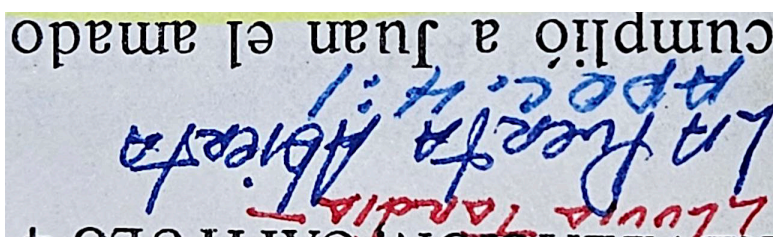 CAPITULO 4
Lluvia Tardia
LA Puerta Abierta
APOC. 4:1
cumplió a Juan el amado